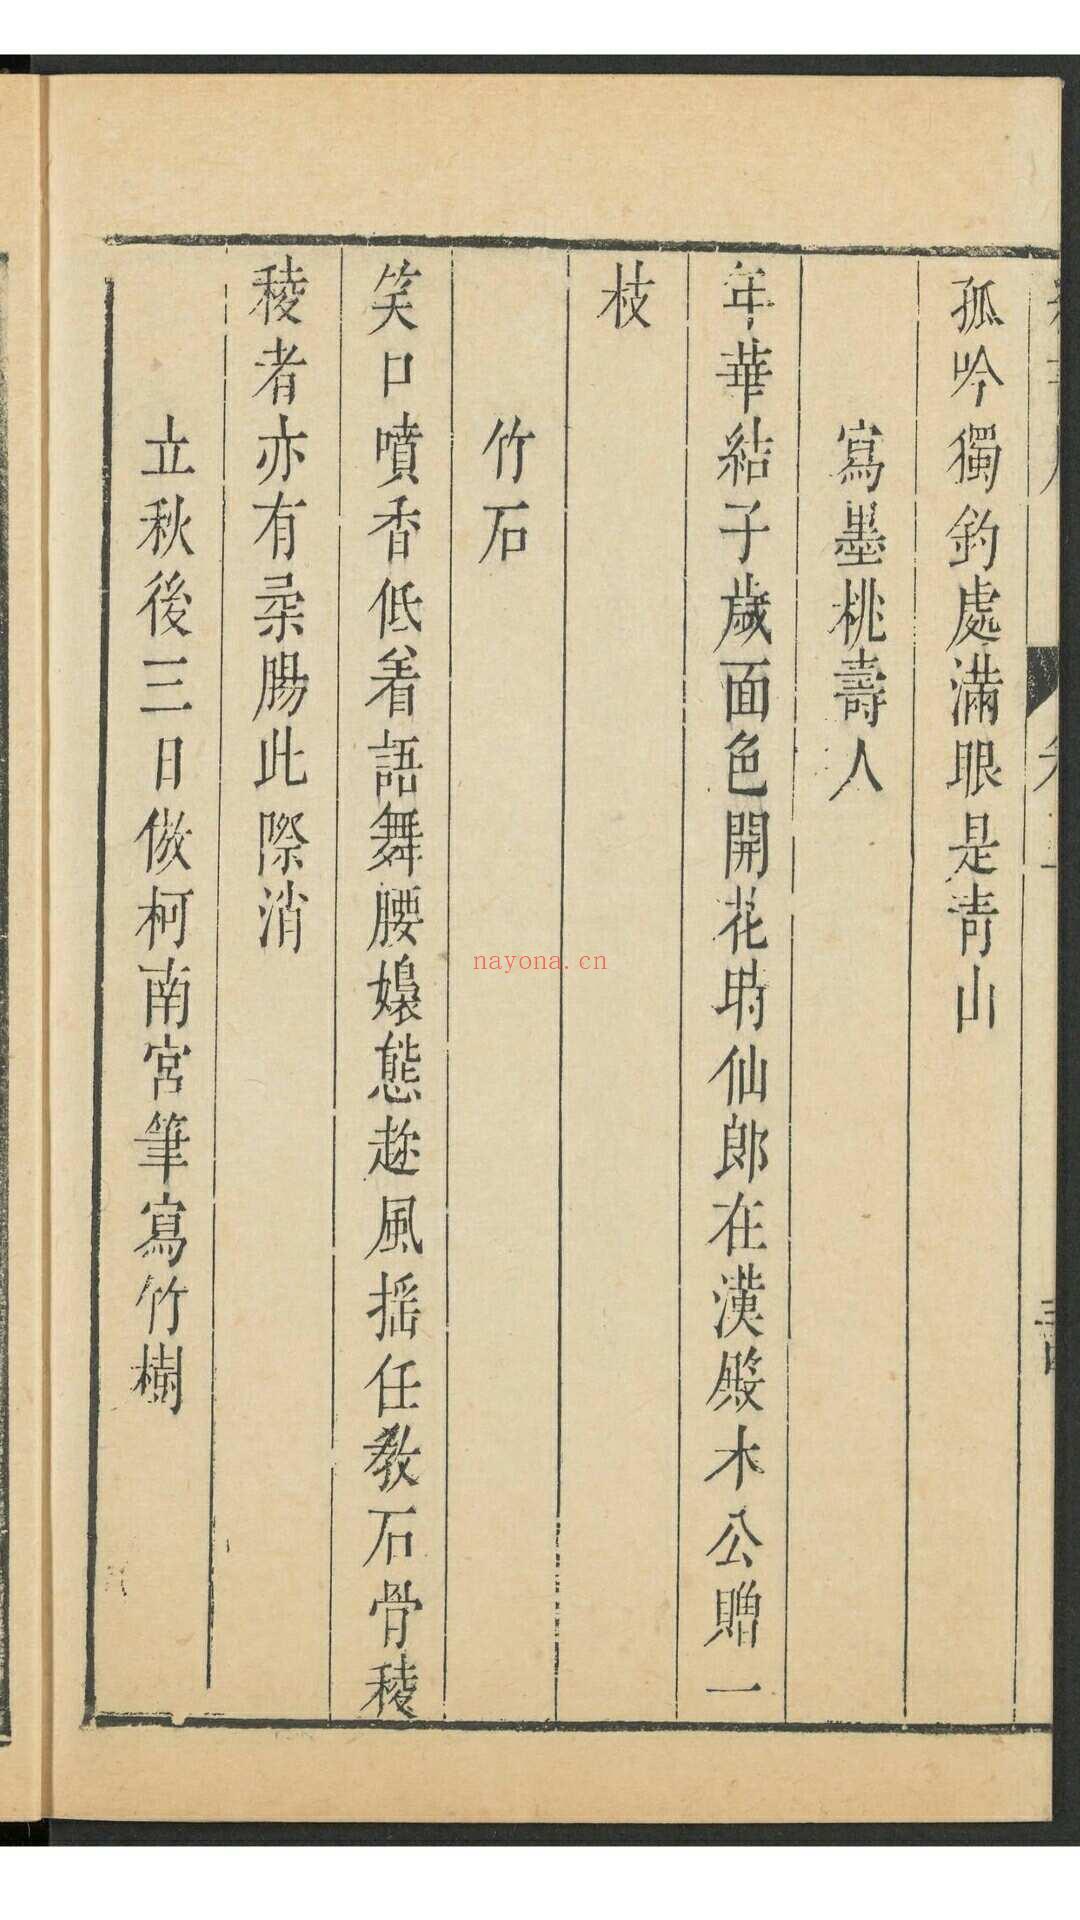 孤吟獨釣處滿眼是青山
寫墨桃壽人
年華結子歲面色開花時仙郎在漢殿木公贈一
枝
竹石
笑口噴香低着語舞腰嬝態趂風揺任教石骨稜
稜者亦有柔腸此際消
立秋後三日倣柯南宮筆寫竹樹
nayona.cn